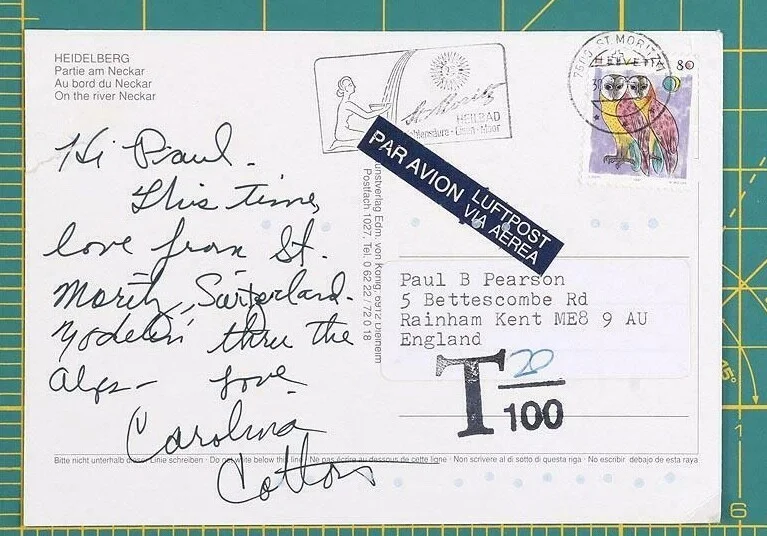 HEIDELBERG
Partie am Neckar
Au bord du Neckar
On the river Neckar
HEILBAD
Eisen · Moor
7500 ST. MORITZ
HELVETIA 80
PAR AVION
LUFTPOST
VIA AEREA
Hi Paul -
This time,
love from St.
Moritz, Switzerland.
Yodelin' thru the
Alps - Love
Carolina
Cotton
Edm. von König
Postfach 1027, Tel. 0 62 22 / 72 0 18
Paul B Pearson
5 Bettescombe Rd
Rainham Kent ME8 9 AU
England
T 20
100
Bitte nicht unterhalb dieser Linie schreiben · Do not write below this line · Ne pas écrire au dessous de cette ligne · Non scrivere al di sotto di questa riga · No escribir debajo de esta raya
1
6